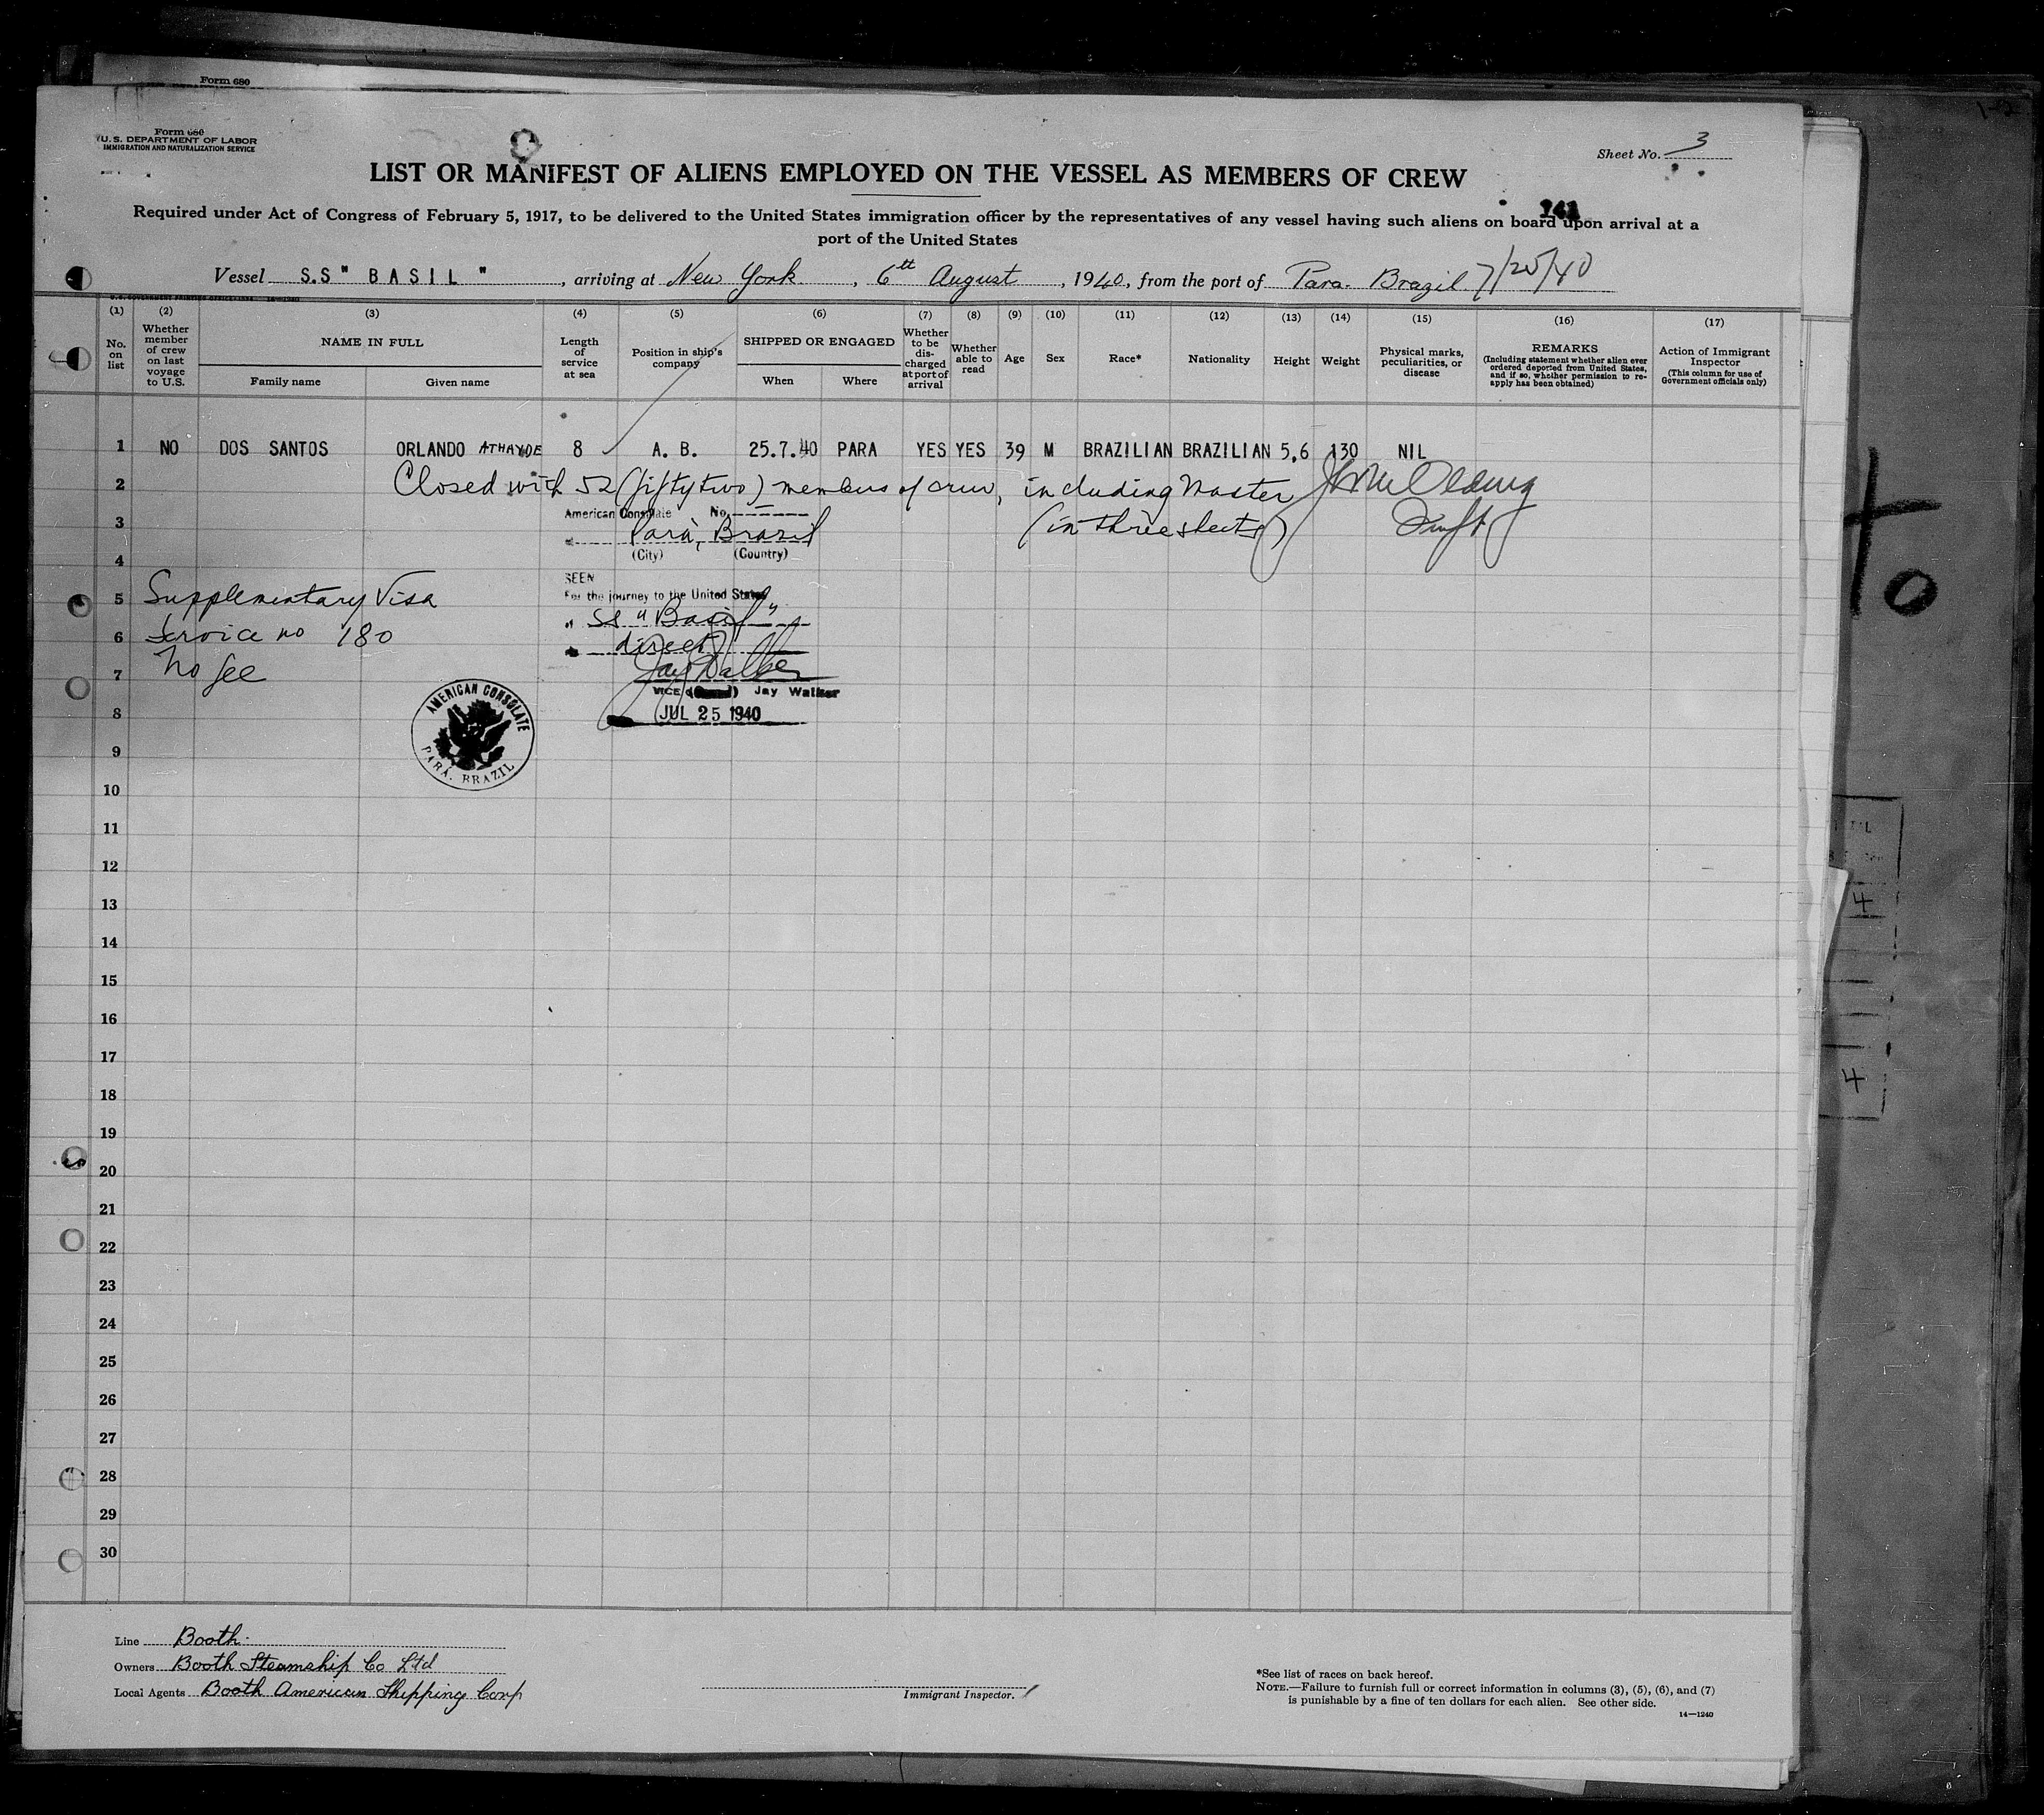 Form 680
Form 680
U. S. DEPARTMENT OF LABOR
IMMIGRATION AND NATURALIZATION SERVICE
Sheet No. 3
LIST OR MANIFEST OF ALIENS EMPLOYED ON THE VESSEL AS MEMBERS OF CREW
Required under Act of Congress of February 5, 1917, to be delivered to the United States immigration officer by the representatives of any vessel having such aliens on board upon arrival at a
port of the United States
Vessel S.S " B A S I L " , arriving at New York , 6th August , 1940, from the port of Para. Brazil 7/25/40
(1) (2) (3) (4) (5) (6) (7) (8) (9) (10) (11) (12) (13) (14) (15) (16) (17)
No. on list
Whether member of crew on last voyage to U.S.
NAME IN FULL
Family name Given name
Length of service at sea
Position in ship's company
SHIPPED OR ENGAGED
When Where
Whether to be discharged at port of arrival
Whether able to read
Age Sex Race* Nationality Height Weight
Physical marks, peculiarities, or disease
REMARKS
(Including statement whether alien ever ordered deported from United States, and if so, whether permission to reapply has been obtained)
Action of Immigrant Inspector
(This column for use of Government officials only)
1 NO DOS SANTOS ORLANDO ATHAYDE 8 A. B. 25.7.40 PARA YES YES 39 M BRAZILIAN BRAZILIAN 5,6 130 NIL
2 Closed with 52 (fifty two) members of crew, including Master
American Consulate No.
3 Pará, Brazil (in three sheets)
(City) (Country)
4
SEEN
For the journey to the United States
5 Supplementary Visa
SS "Basil"
6 Service no 180
direct
7 No fee
Jay Walker
VICE Jay Walker
8 JUL 25 1940
AMERICAN CONSULATE
PARÁ, BRAZIL
9
10
11
12
13
14
15
16
17
18
19
20
21
22
23
24
25
26
27
28
29
30
Line Booth.
Owners Booth Steamship Co Ltd
Local Agents Booth American Shipping Corp
Immigrant Inspector.
*See list of races on back hereof.
NOTE.—Failure to furnish full or correct information in columns (3), (5), (6), and (7)
is punishable by a fine of ten dollars for each alien. See other side.
14—1240
4
4